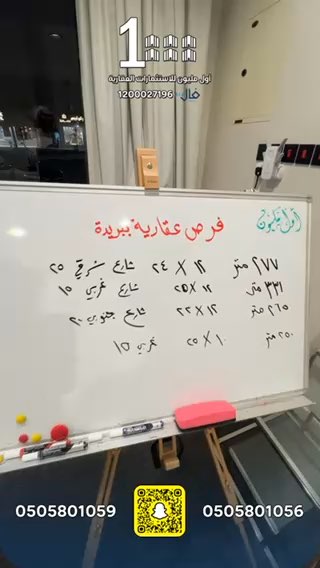 أول مليون للاستثمارات العقارية
فال: 1200027196
أول مليون
فرص عقارية ببريدة
٢٧٧ متر ١٢ X ٢٤ شارع شرقي ٢٥
٣٣١ متر ١٢ X ٢٥ شارع غربي ١٥
٢٦٥ متر ١٢ X ٢٢ شارع جنوبي ٢٠
٢٥٠ متر ١٠ X ٢٥ غربي ١٥
0505801059
0505801056